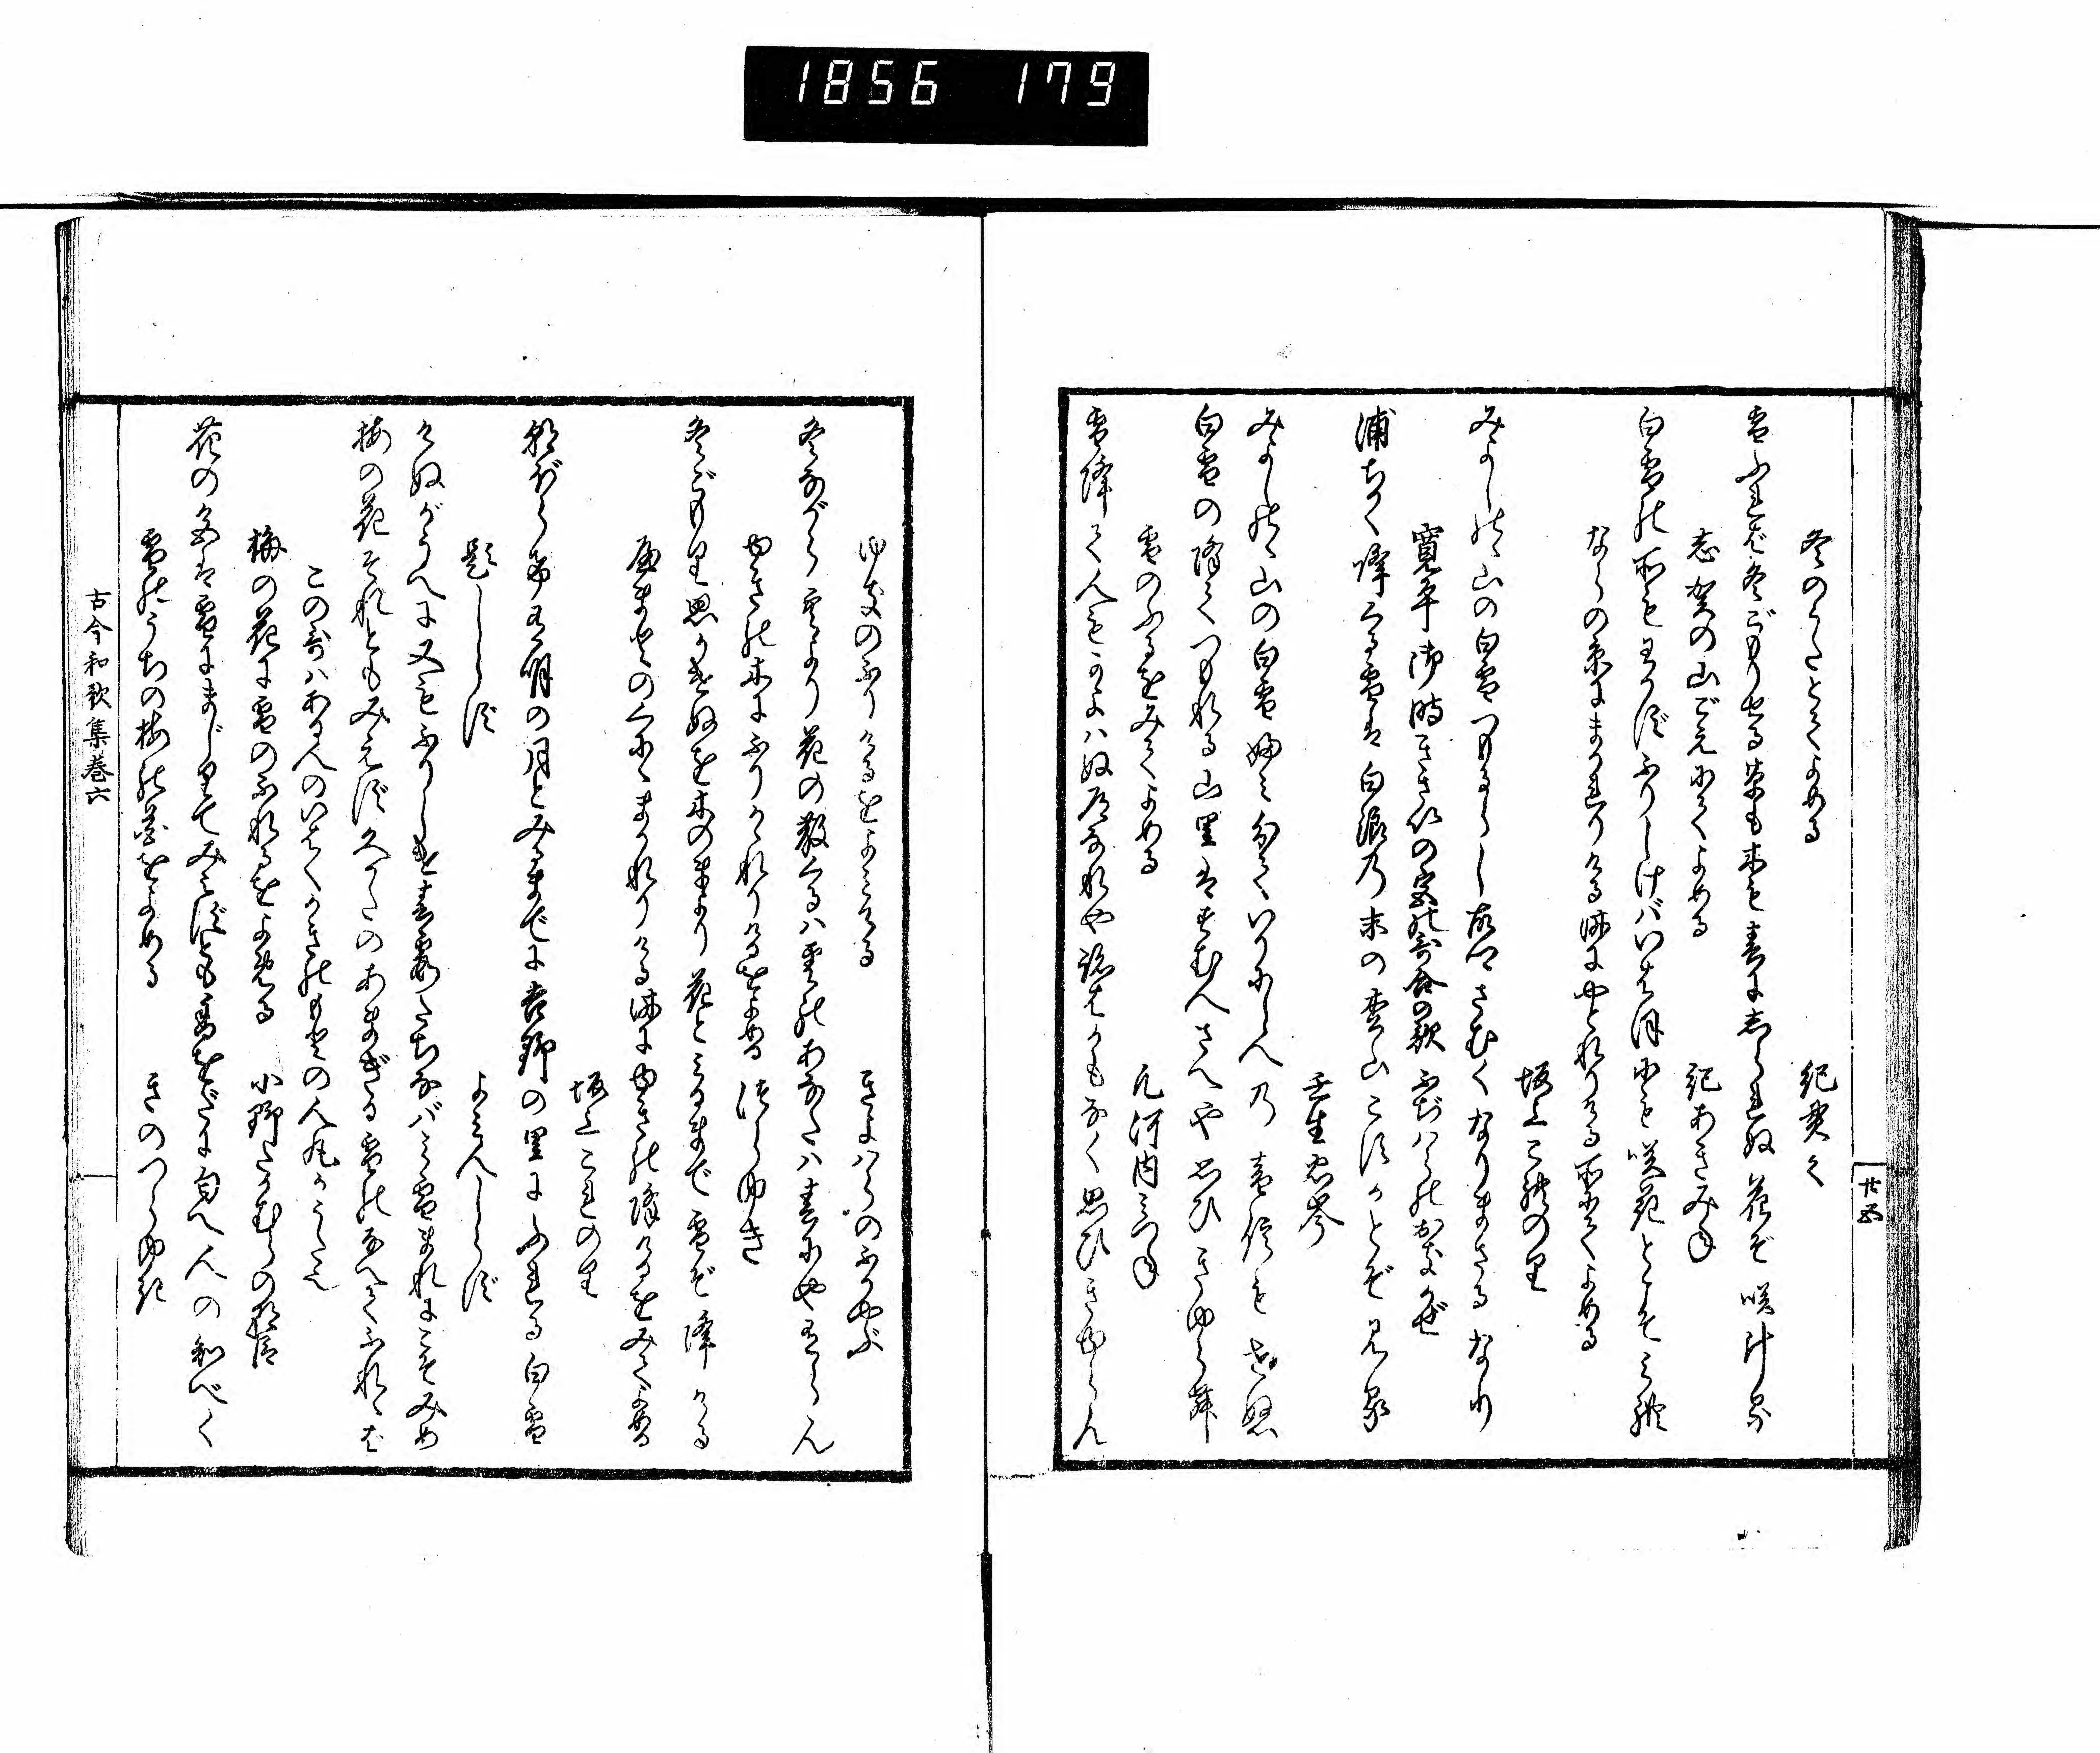 1856 179
廿五
冬のうたとてよめる 紀貫之
雪ふれば冬ごもりせる草も木も春にしられぬ花ぞ咲ける
志賀の山ごえにてよめる 紀あきみね
白雪の所もわかずふりしけばいはほにも咲花とこそみれ
ならの京にまかれりける時にやどれりける所にてよめる
坂上これの里
みよしのゝ山の白雪つもるらし故郷さむくなりまさるなり
寛平御時きさいの宮の哥合の歌 ふぢハらのおきかぜ
浦ちかく降くる雪は白浪乃末の松山こすかとぞ見る
壬生忠岑
みよしのゝ山の白雪ふみ分ていりにし人乃音信もせぬ
白雪の降てつもれる山里はすむ人さへや思ひきゆらむ
雪のふるをみてよめる 凡河内みつね
雪降て人もかよハぬ道なれや跡はかもなく思ひきゆらん
ゆきのふりけるをよみける きよハらのふかやぶ
冬ながら空より花の散くるハ雲のあなたハ春にやあるらん
ゆきの木にふりかゝれりけるをよめる つらゆき
冬ごもり思ひかけぬを木のまより花とみるまで雪ぞ降ける
やまとのくにゝまかれりける時にゆきの降けるをみてよめる
坂上これのり
朝ぼらけ有明の月とみるまでに吉野の里にふれる白雪
題しらず よみ人しらず
けぬがうへに又もふりしけ春霞たちなバみ雪まれにこそみめ
梅の花それともみえず久かたのあまぎる雪のなべてふれゝば
この哥ハある人のいはくかきのもとの人丸がうた也
梅の花に雪のふれるをよめる 小野たかむらの朝臣
花の色は雪にまじりてみえずとも香をだに匂へ人の知べく
雪のうちの梅の花をよめる きのつらゆき
古今和歌集巻六